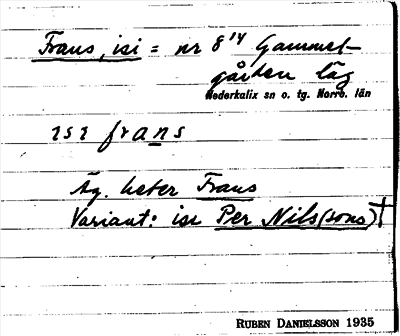 Frans, isi = nr 8¹⁴ Gammel-
gården läg
Nederkalix sn o. tg. Norrb. län
ısı frans
Äg. heter Frans
Variant: isi Per Nils(sons) †
RUBEN DANIELSSON 1935